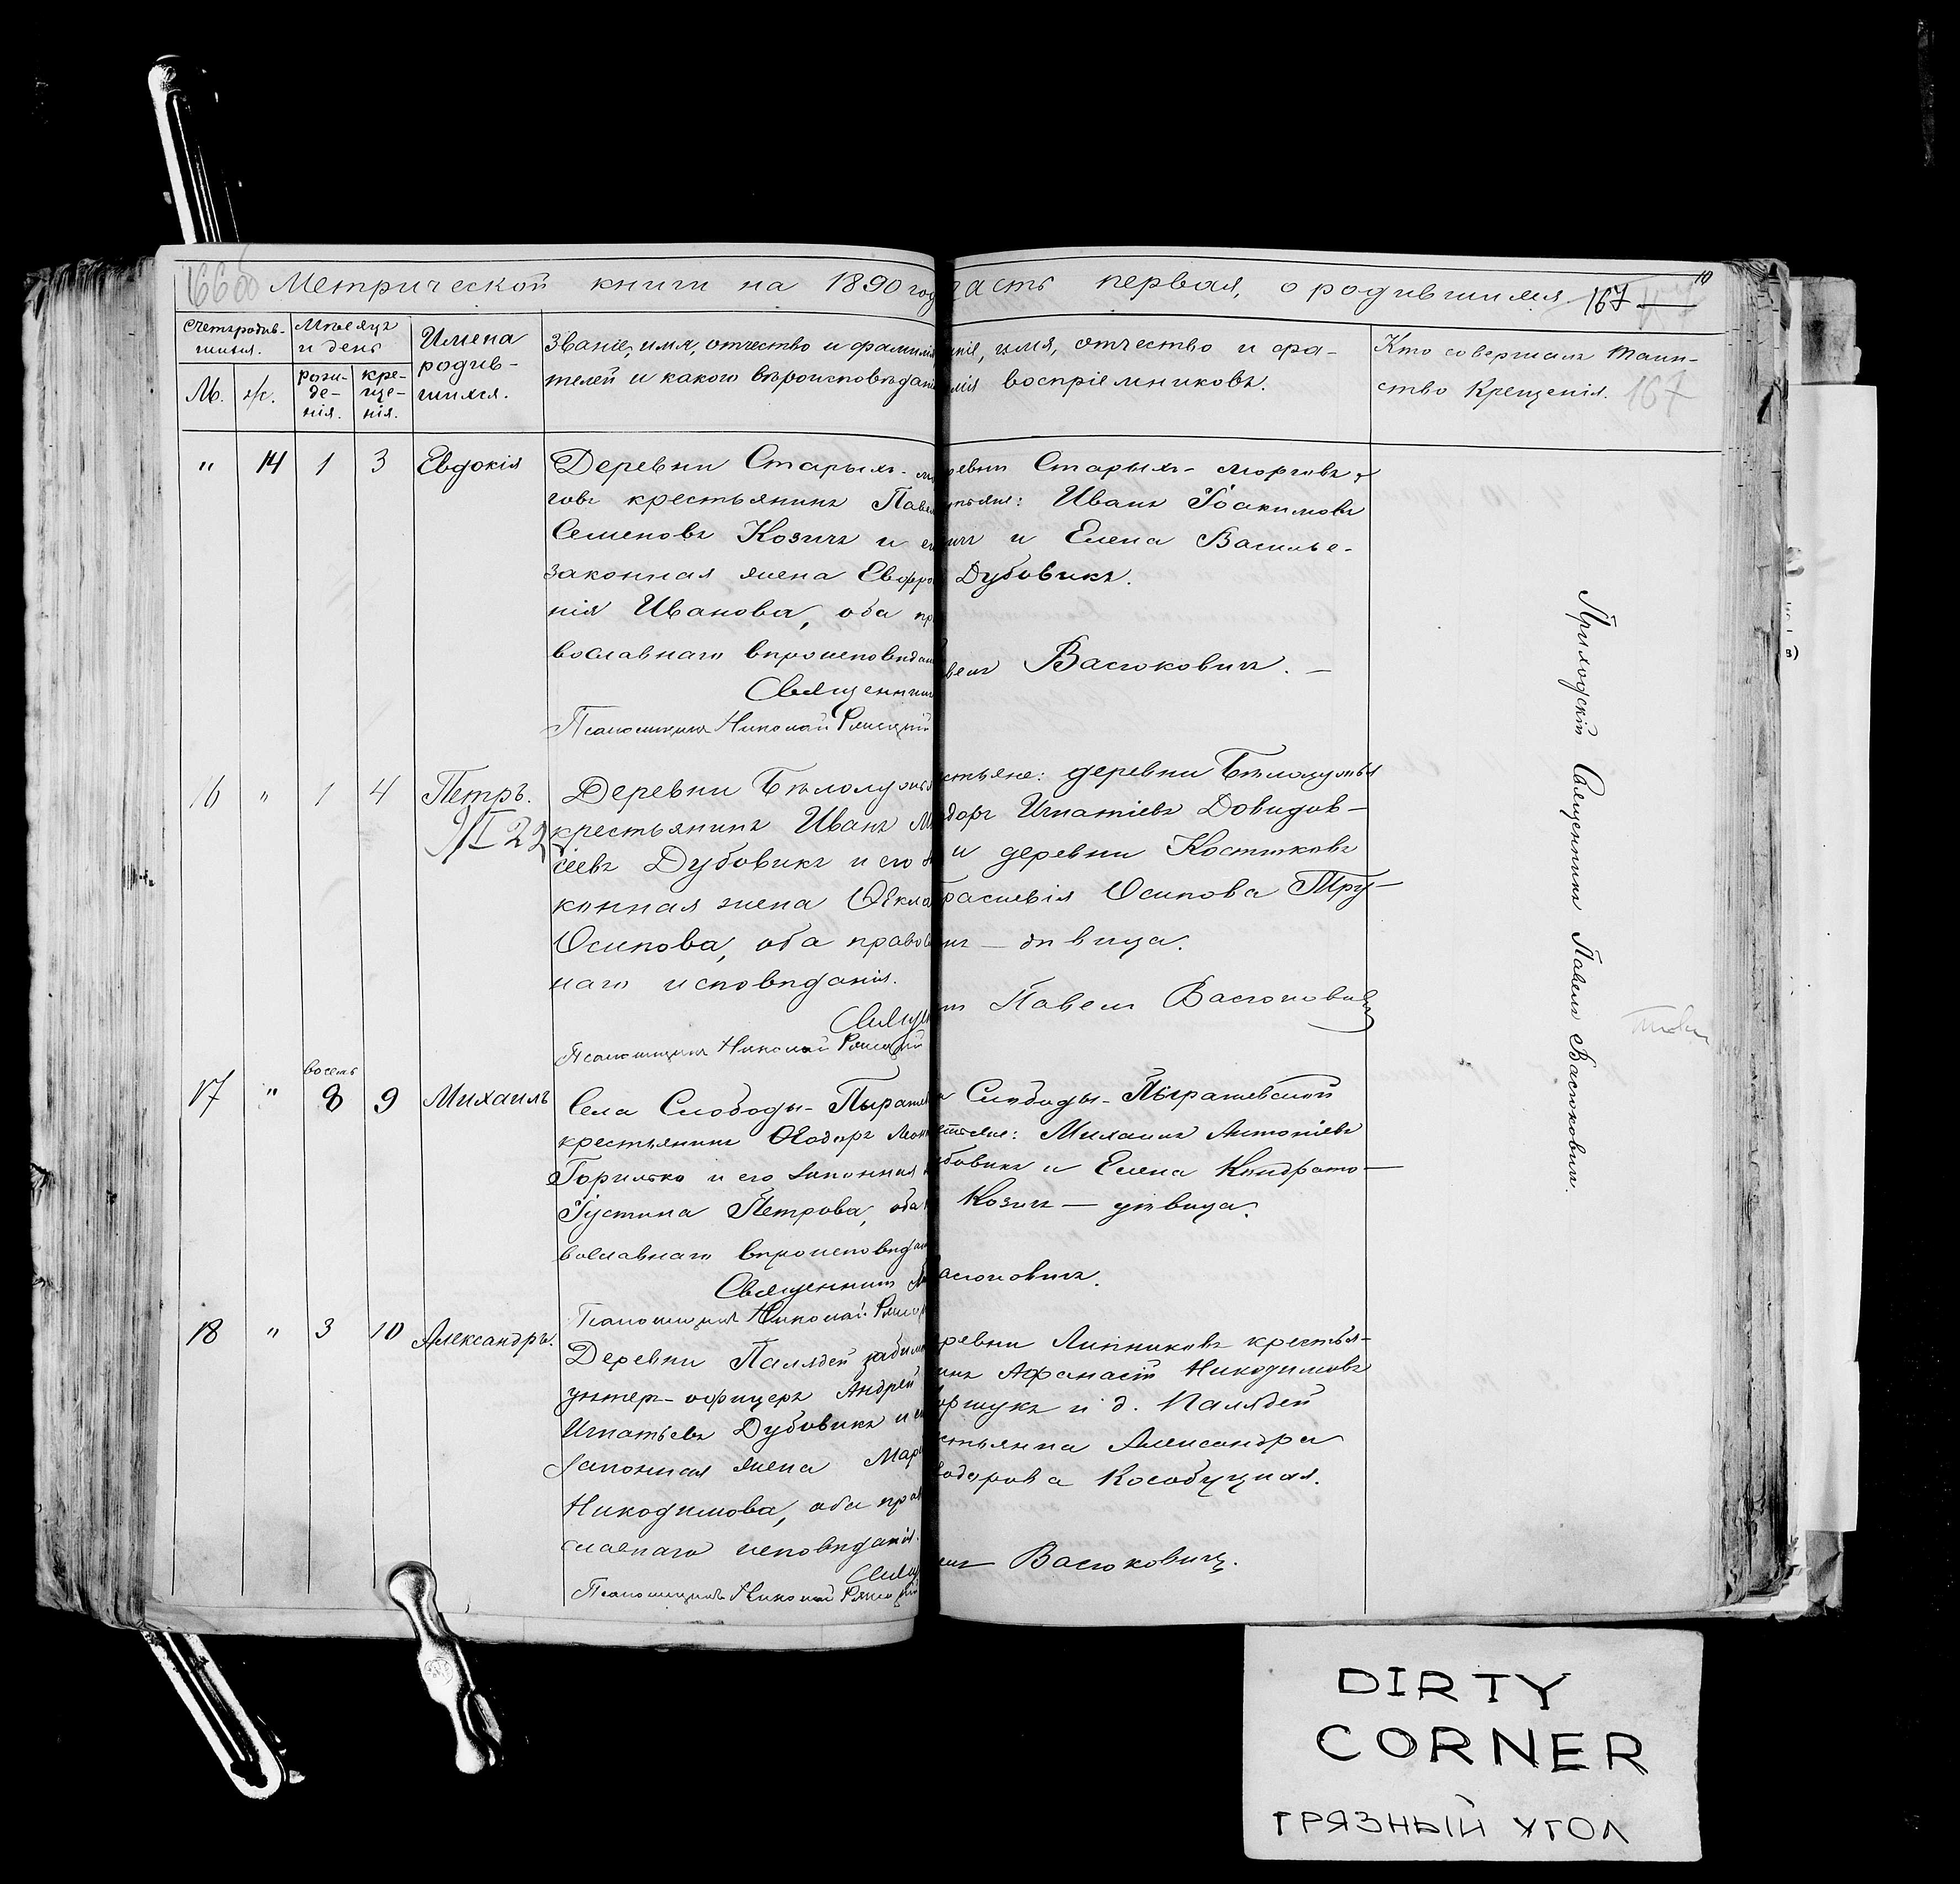 Метрической книги на 1890 год
часть первая, о родившихся 167 10
Счетъ родив-
шихся.
Мѣсяцъ
и день
Имена
родив-
шихся.
М. ж.
рож-
де-
нія.
кре-
ще-
нія.
Званіе, имя, отчество и фамилія
телей и какого вѣроисповѣдан
аніе, имя, отчество и фа-
милія воспріемниковъ.
Кто совершалъ таин-
ство Крещенія. 167
" 14 1 3 Евдокія
Деревни Старыхъ-мо
говъ крестьянинъ Паве
Семеновъ Козичъ и ег
законная жена Евфро
нія Иванова, оба пр
вославнаго вѣроисповѣдан
Священник
Псаломщикъ Николай
ревни Старыхъ-Морговъ
стьяне: Иванъ Іоакимовъ
ичъ и Елена Василье-
Дубовикъ.
велъ Васюковичъ. —
16 " 1 4 Петръ.
Деревни Бѣлолужья
крестьянинъ Иванъ М
сіевъ Дубовикъ и его з
конная жена Ѳекла
Осипова, оба правос
наго исповѣданія.
Свящ
Псаломщикъ Николай
стьяне: деревни Бѣлолужья
доръ Игнатіевъ Довидов-
и деревни Костюковъ
расковія Осипова Тру-
— дѣвица.
Павелъ Васюкович
17 " восемь 8 9 Михаилъ
Села Слободы-Пырашев
крестьянинъ Ѳеодоръ Леон
Горилько и его законная
Іустина Петрова, оба
вославнаго вѣроисповѣдан
Священникъ
Псаломщикъ Николай
а Слободы-Пырашевской
стьяне: Михаилъ Антоніевъ
бовикъ и Елена Кондрато-
Козичъ — дѣвица.
асюковичъ.
18 " 3 10 Александръ.
Деревни Палядей
унтер-офицеръ Андрей
Игнатьевъ Дубовикъ и ег
законная жена Мар
Никодимова, оба прав
славнаго исповѣданія.
Свящ
Псаломщикъ Николай
ревни Липниковъ крестья-
инъ Афанасій Никодимовъ
оршукъ и д. Палядей
стьянка Александра
еодорова Кособуцкая.
елъ Васюковичъ.
Приходскій Священникъ Павелъ Васюковичъ.
DIRTY
CORNER
ГРЯЗНЫЙ УГОЛ